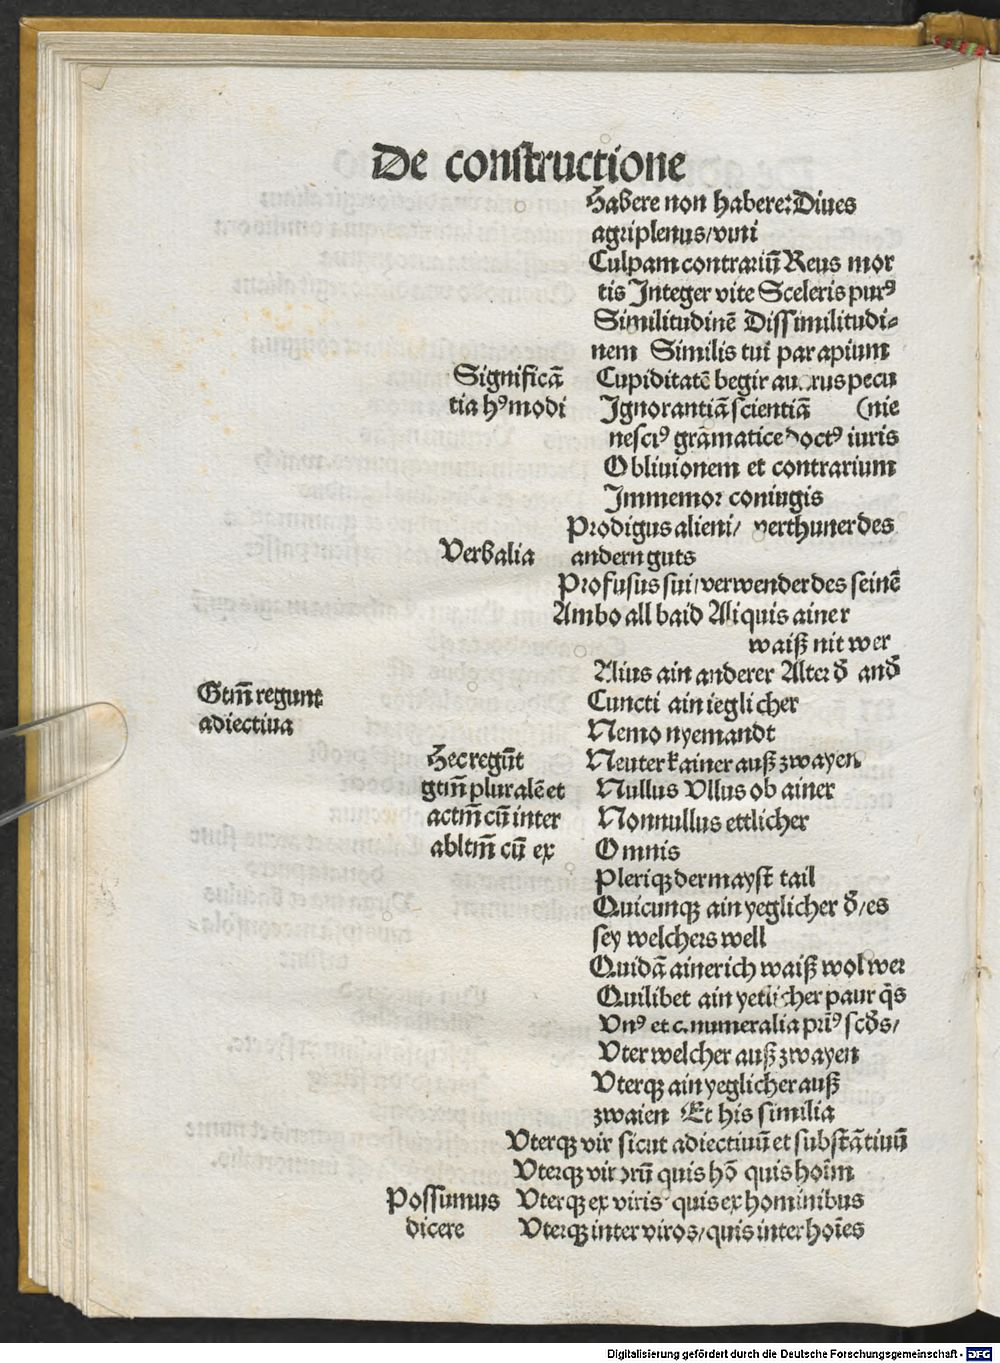 De constructione
Habere non habere: Diues
agri plenus/ vini
Culpam contrariū Reus mor
tis Integer vite Sceleris purꝰ
Similitudinē Dissimilitudi⸗
nem Similis tui par apium
Significā Cupiditatē begir pecu
tia hꝰmodi Ignorantiā scientiā (nie
nesciꝰ grāmatice doctꝰ iuris
Obliuionem et contrarium
Immemor coniugis
Prodigus alieni/ verthuner des
Verbalia andern guts
Profusus sui/ verwender des seinē
Ambo all baid Aliquis ainer
waiß nit wer
Alius ain anderer Alter đ and̄
Gtm̄ regunt Cuncti ain ieglicher
adiectiua Nemo nyemandt
Hec regūt Neuter kainer auß zwayen
gtm̄ pluralē et Nullus Vllus ob ainer
actm̄ cū inter Nonnullus ettlicher
abltm̄ cū ex Omnis
Pleriqꝫ der mayst̄ tail
Quicunqꝫ ain yeglicher đ/ es
sey welchers well
Quidā ainer ich waiß wol wer
Quilibet ain yetlicher paur q̄s
Vnꝰ et c. numeralia pri꯬ꝰ scđs/
Vter welcher auß zwayen
Vterqꝫ ain yeglicher auß
zwaien Et his similia
Vterqꝫ vir sicut adiectiuū et substātiuū
Vterqꝫ virorū quis hō quis hoīm
Possumus Vterqꝫ ex viris quis ex hominibus
dicere Vterqꝫ inter viros/ quis inter hoīes
Digitalisierung gefördert durch die Deutsche Forschungsgemeinschaft - DFG